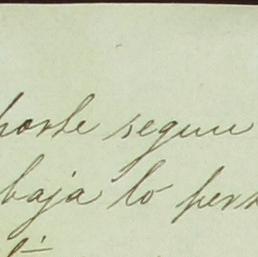 porte segun
baja lo pers